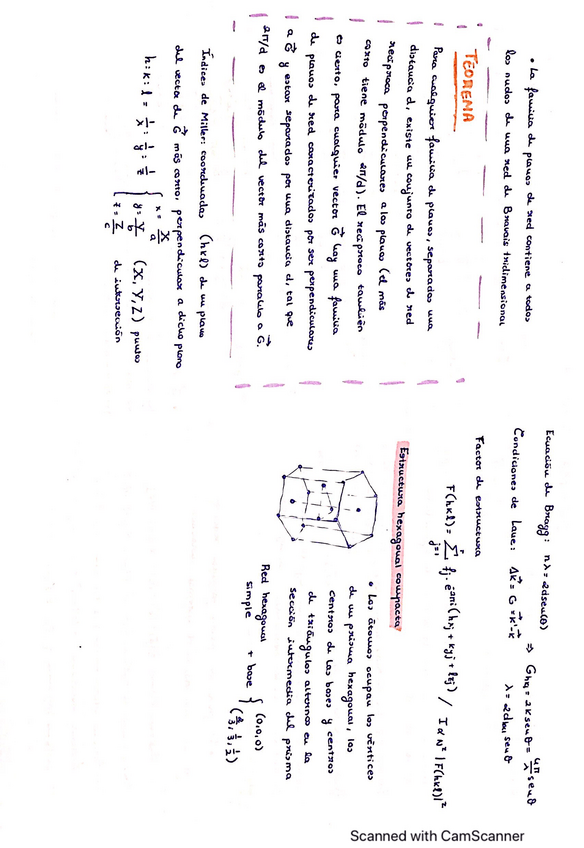 • La familia de planos de red contiene a todos
los nudos de una red de Bravais tridimensional
TEOREMA
Para cualquier familia de planos, separados una
distancia d, existe un conjunto de vectores de red
recíproca perpendiculares a los planos (el más
corto tiene módulo 2π/d). El recíproco también
es cierto, para cualquier vector G⃗ hay una familia
de planos de red caracterizados por ser perpendiculares
a G⃗ y estar separados por una distancia d, tal que
2π/d es el módulo del vector más corto paralelo a G⃗.
Índices de Miller: coordenadas (hkl) de un plano
del vector de G⃗ más corto, perpendicular a dicho plano
h:k:l = 1/x : 1/y : 1/z { x = X/a
y = Y/b (X, Y, Z) puntos
z = Z/c de intersección
Ecuación de Bragg: nλ = 2dsen(θ)
Condiciones de Laue: Δk⃗ = G⃗ = k⃗' - k⃗ ⇒ Ghkl = 2ksenθ = 4π/λ senθ
λ = 2dhkl senθ
Factor de estructura
F(hkl) = Σ fj · e^2πi(hxj + kyj + lzj) / I α N² |F(hkl)|²
Estructura hexagonal compacta
• Los átomos ocupan los vértices
de un prisma hexagonal, los
centros de las bases y centros
de triángulos alternos en la
sección intermedia del prisma
Red hexagonal simple + base { (0,0,0)
(2/3, 1/3, 1/2)
Scanned with CamScanner